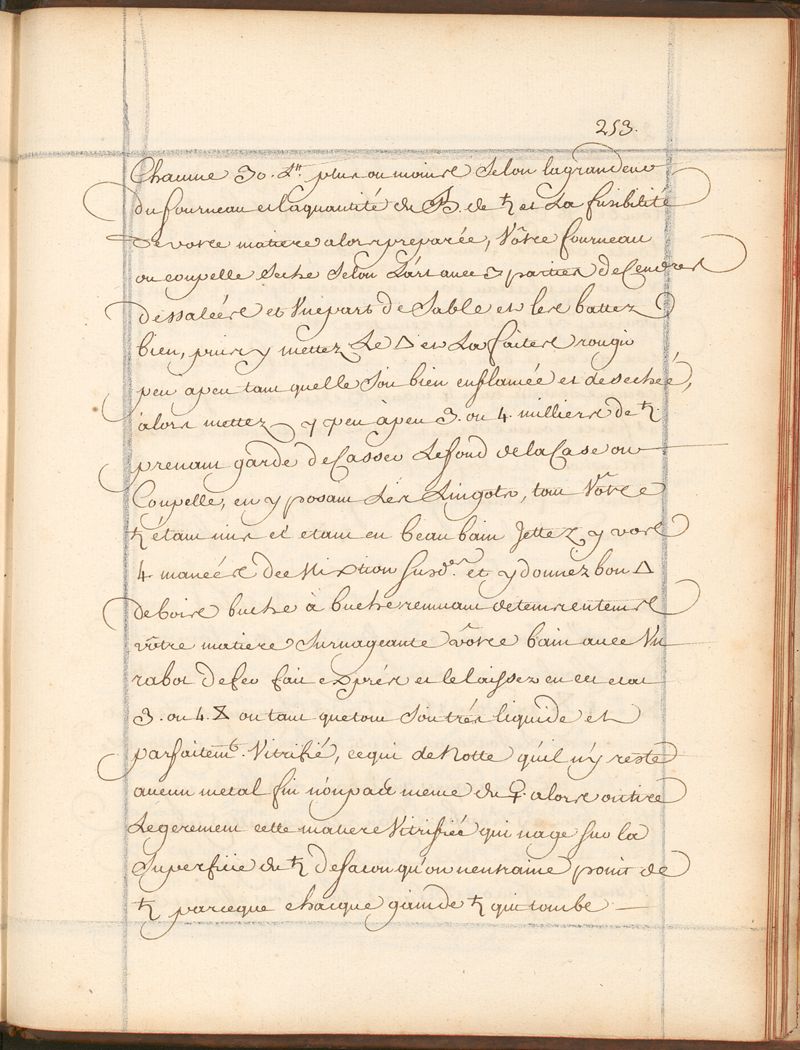 253.
Chacune 30. ₶ plus ou moins Selon la grandeur
du fourneau et la quantité du de ♄ et La fusibilité
de votre matiere alors preparée, Vôtre fourneau
ou coupelle Seche Selon L'art avec 3 parties de Cendres
dessalées et Vne part de Sable et les battez
bien, puis y mettez Le △ et La faites rougir
peu a peu tant quelle Soit bien enflamée et desecheé,
alors mettez y peu à peu 3. ou 4. milliers de ♄.
prenant garde de Casser Le fond de la Case ou
Coupelle, en y posant Les Lingots, tout Vôtre
♄ étant mis et etant en beau bain Jettez y vos
4. maneés de Mixtion Susd. et y donnez bon △
de bois buche à buche remuant de tems en tems
vôtre matiere Surnageante vôtre bain avec Vn
rabot de fer fait exprés et le laissez en cet etat
3. ou 4. ⧖ ou tant que tout Soit trés liquide et
parfaitemt. Vitrifié, ce qui denotte qu'il n'y reste
aucun metal fin non pas meme du ♀. alors on tire
Legerement cette matiere Vitrifiée qui nage Sur la
Superficie du ♄ de facon qu'on n'entraine point de
♄ parceque chacque grain de ♄ qui tombe